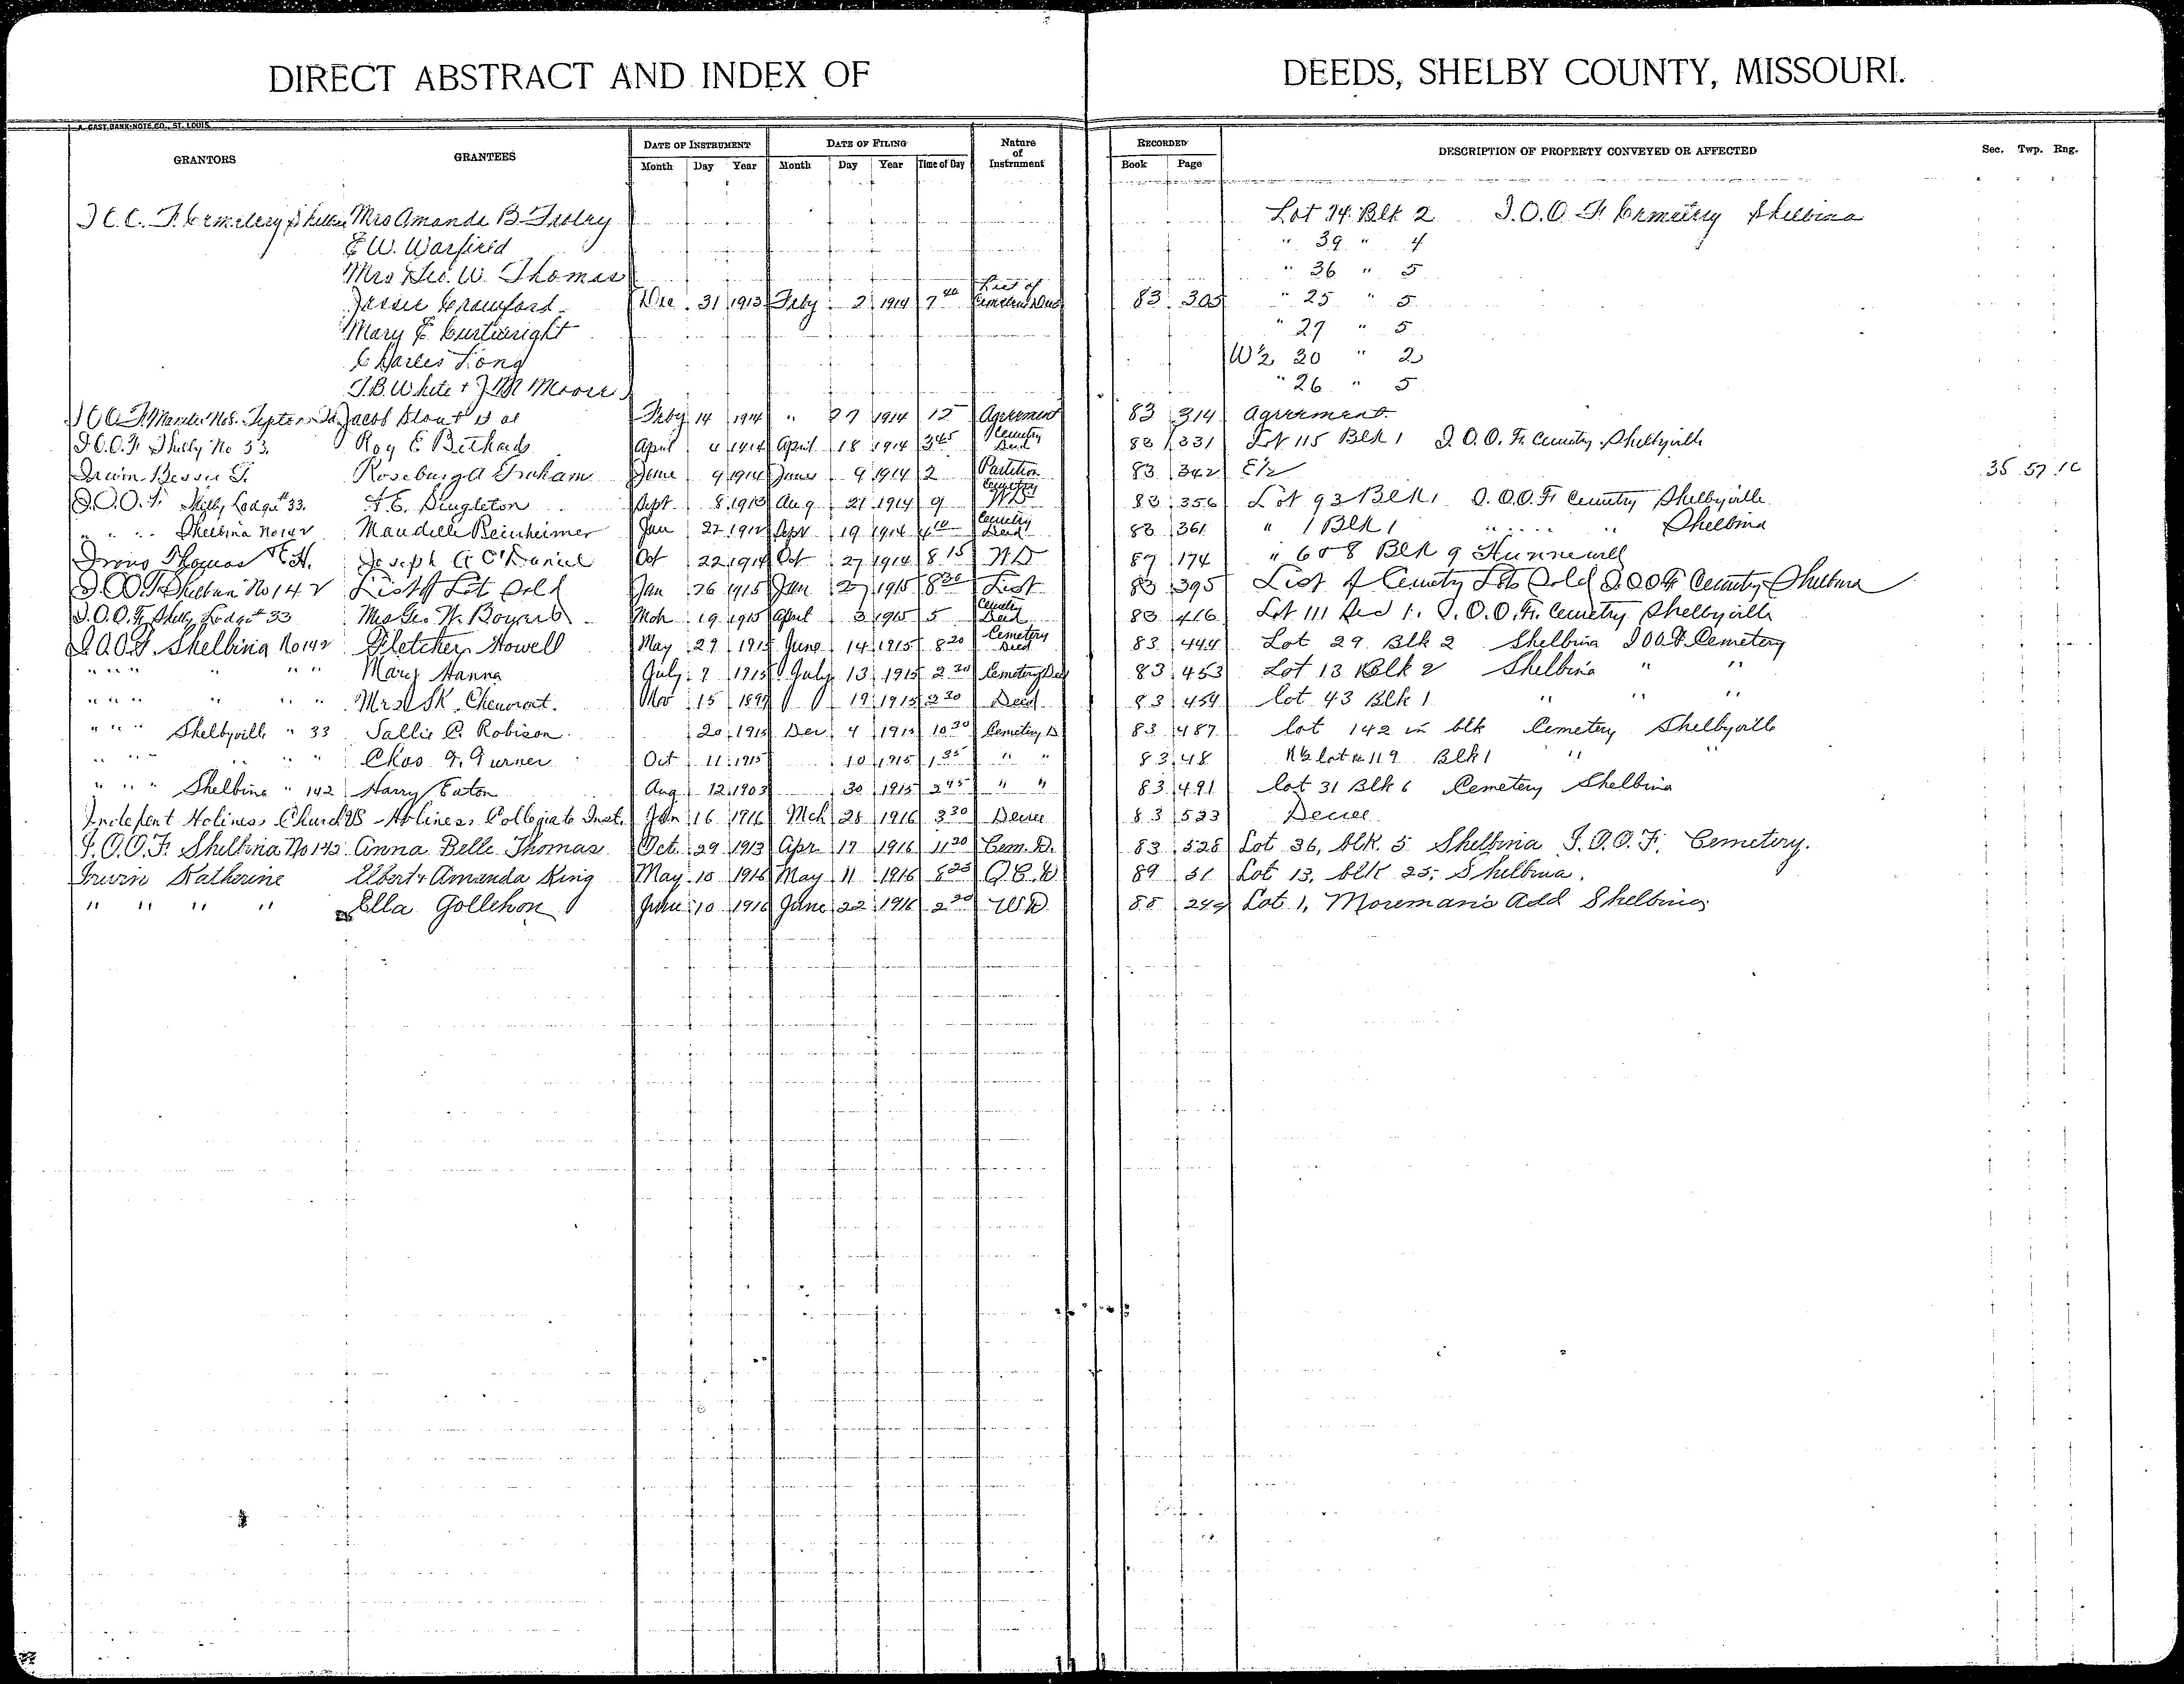 DIRECT ABSTRACT AND INDEX OF DEEDS, SHELBY COUNTY, MISSOURI.
A. GAST BANK NOTE CO., ST. LOUIS
GRANTORS GRANTEES DATE OF INSTRUMENT DATE OF FILING Nature of Instrument RECORDED DESCRIPTION OF PROPERTY CONVEYED OR AFFECTED Sec. Twp. Rng.
Month Day Year Month Day Year Time of Day Book Page
Mrs Amanda B. Lot 74 Blk 2 I.O.O.F. Cemetery Shelbina
E W. Warfield " 39 " 4
Mrs Geo. W. Thomas " 36 " 5
Jessie Crawford Dec 31 1913 Feby 2 1914 7 40 List of Cemetery Deed 83 305 " 25 " 5
Mary E. Curtwright " 27 " 5
Charles Long W½ 30 " 2
T.B. White + J M Moore " 26 " 5
Jacob Stout et al Feby 14 1914 " 27 1914 Agreement 83 314 Agreement
I.O.O.F. Shelby No 33 Roy E Bethards April 4 1914 April 18 1914 3 45 Cemetery Deed 83 331 Lot 115 Blk 1 I.O.O.F. Cemetery Shelbyville
Irwin Bessie T. Graham June 9 1914 June 9 1914 2 Partition 83 342 E½ 35 57 10
I.O.O.F. Shelby Lodge #33 Singleton Sept 8 1913 Aug 21 1914 9 Cemetery WD 83 356 Lot 93 Blk 1 I.O.O.F. Cemetery Shelbyville
" " " Shelbina No 142 Maudelle Reinheimer Jan 27 1912 Sept 19 1914 4 10 Cemetery Deed 83 361 " 1 Blk 1 " " " " " Shelbina
Irons Thomas E.H. Joseph A O'Daniel Oct 22 1914 Oct 27 1914 8 15 WD 87 174 " 6 & 8 Blk 9 Hunnewell
I.O.O.F. Shelbina No 142 List of Lot Sold Jan 26 1915 Jan 27 1915 8 30 List 83 395 List of Cemetery Lots Sold I.O.O.F. Cemetery Shelbina
I.O.O.F. Shelby Lodge #33 Mrs Geo. W. Mch 19 1915 April 3 1915 5 Cemetery Deed 83 416 Lot 111 Sec 1. I.O.O.F. Cemetery Shelbyville
I.O.O.F. Shelbina No 142 Fletcher Howell May 29 1915 June 14 1915 8 20 Cemetery Deed 83 444 Lot 29 Blk 2 Shelbina I O O F Cemetery
" " " " " " Mary Hanna July 7 1915 July 13 1915 2 30 Cemetery Deed 83 453 Lot 13 Blk 2 Shelbina " "
" " " " " " Mrs S K. Chenoront. Nov 15 1899 " 19 1915 2 30 Deed 83 454 lot 43 Blk 1 " " "
" " " Shelbyville " 33 Sallie C. Robison 20 1915 Dec 4 1915 10 30 Cemetery D 83 487 lot 142 in blk Cemetery Shelbyville
" " " " " Chas. F. Turner Oct 11 1915 10 1915 1 35 " " 83 48 N½ lot 119 Blk 1 " "
" " " Shelbina " 142 Harry Eaton Aug 12 1903 30 1915 2 45 " " 83 491 lot 31 Blk 6 Cemetery Shelbina
Indepent Holiness Church VS Holiness Collegiate Inst. Jan 16 1916 Mch 28 1916 3 30 Decree 83 523 Decree
I.O.O.F. Shelbina No 142 Anna Belle Thomas Oct. 29 1913 Apr 17 1916 11 30 Cem. D. 83 528 Lot 36, blk. 5 Shelbina I.O.O.F. Cemetery.
Irwin Katherine Elbert & Amanda King May 10 1916 May 11 1916 8 25 Q.C.D 89 31 Lot 13, blk 25, Shelbina.
" " " " Ella Gollehon June 10 1916 June 22 1916 2 20 W D 88 249 Lot 1, Moreman's Add Shelbina